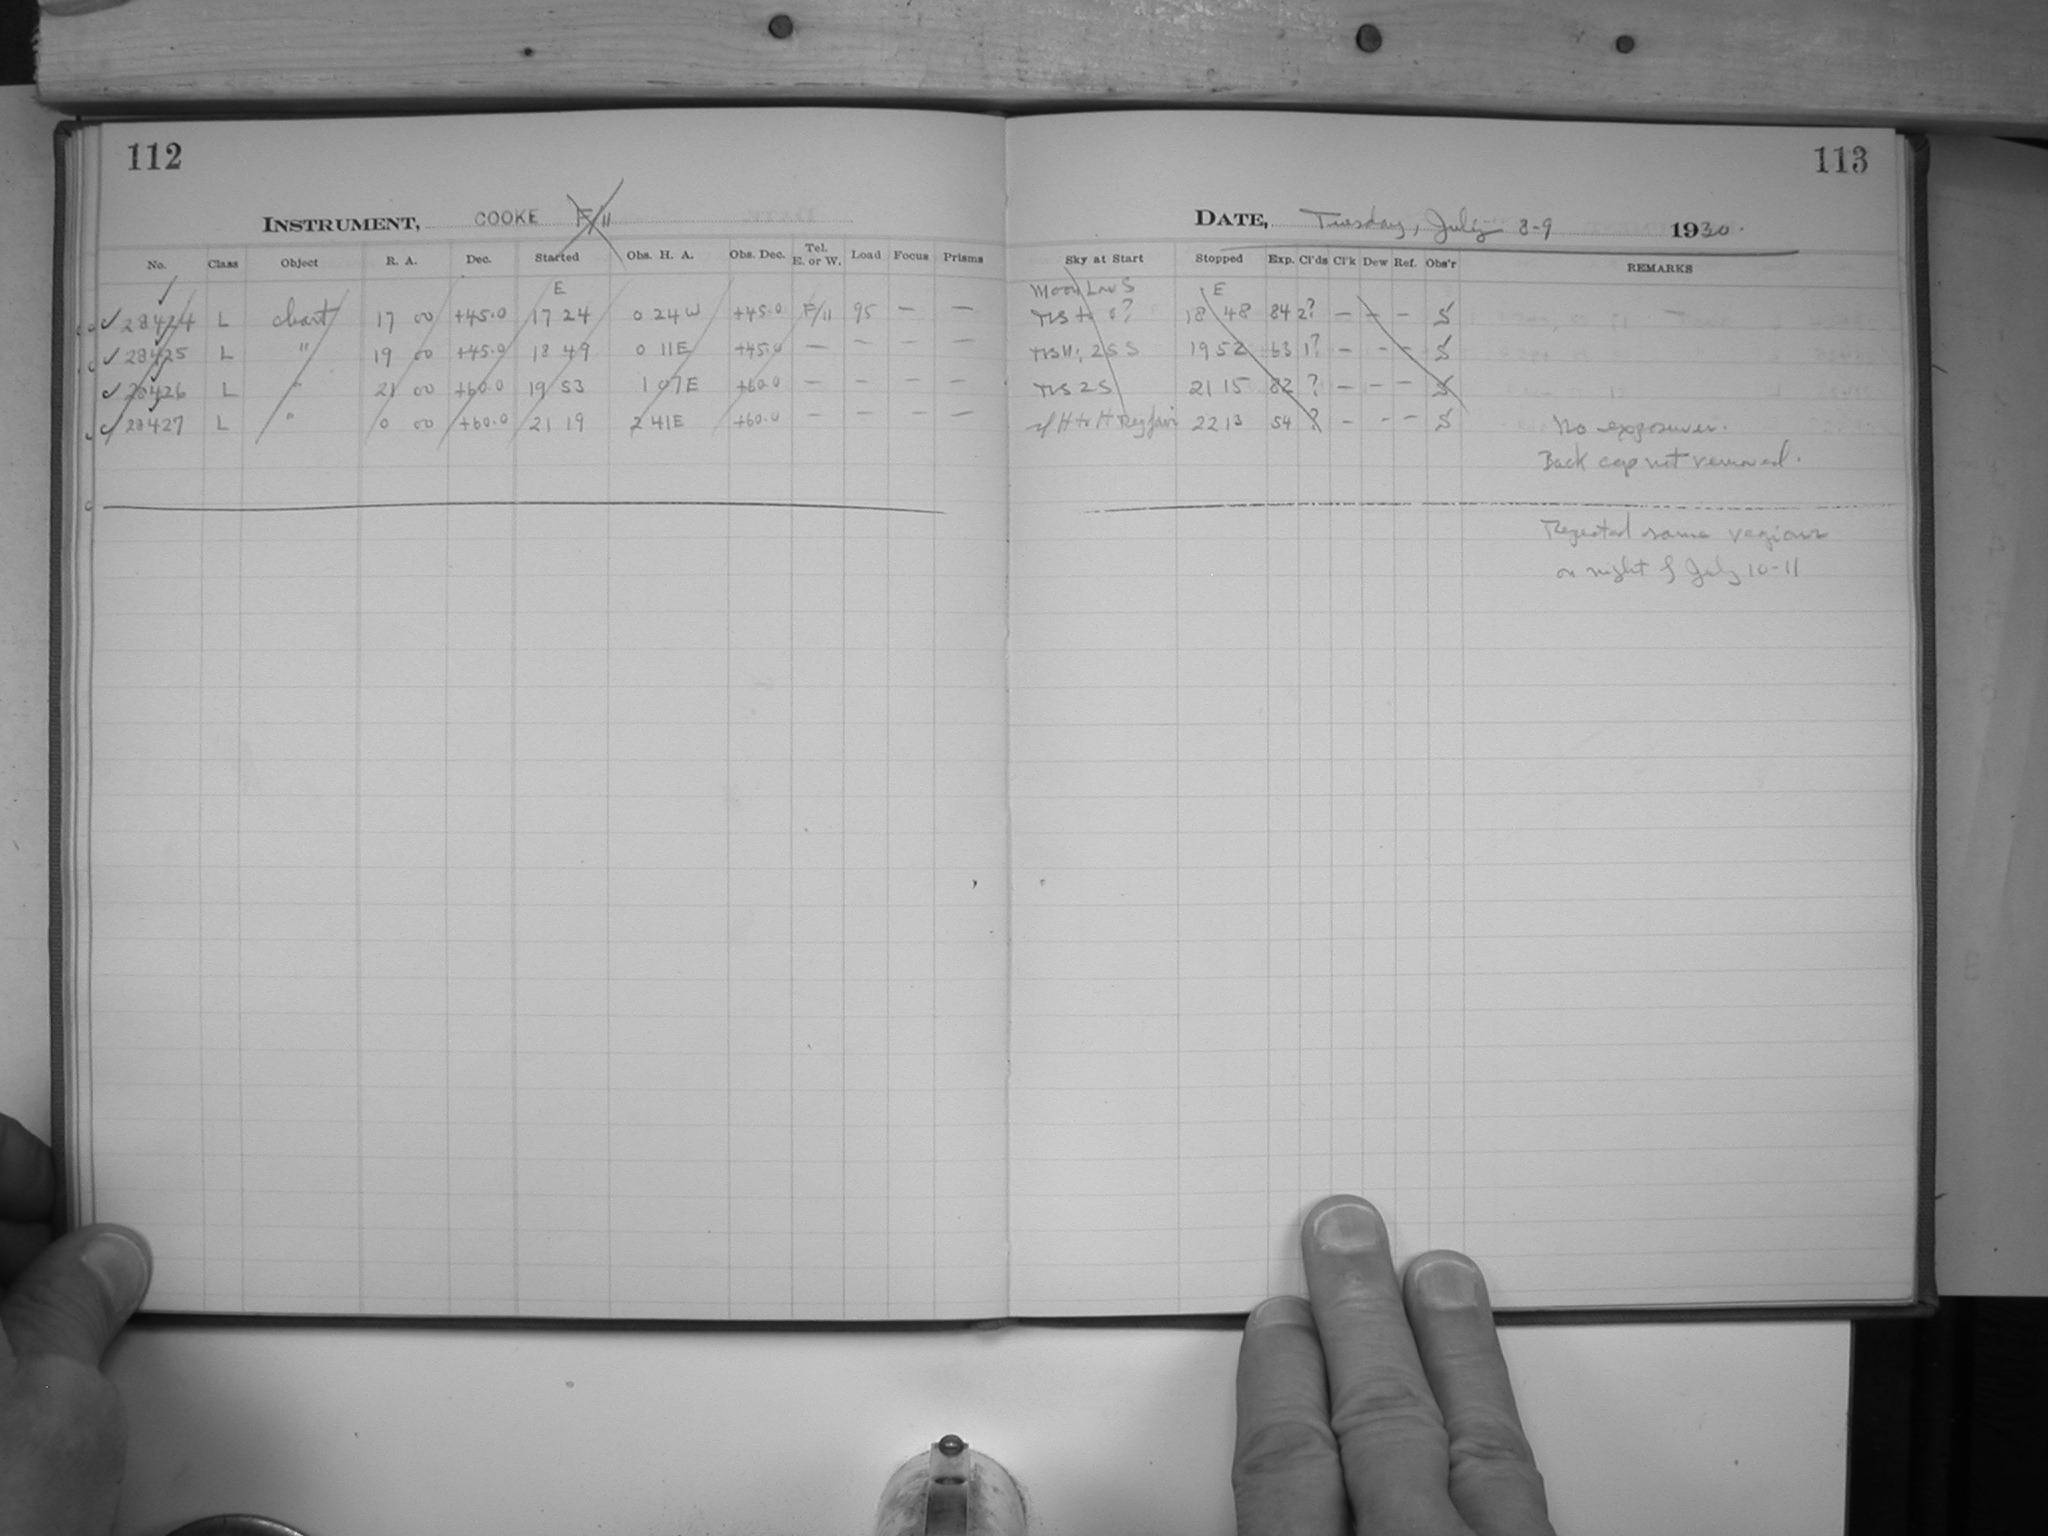 112
INSTRUMENT, COOKE F/11
No. Class Object R. A. Dec. Started Obs. H. A. Obs. Dec. Tel. E. or W. Load Focus Prisms
E
✓ 28424 L chart 17 00 +45.0 17 24 0 24 W +45.0 F/11 95 — —
✓ 28425 L " 19 00 +45.0 18 49 0 11 E +45.0 — — — —
✓ 28426 L " 21 00 +60.0 19 53 1 07 E +60.0 — — — —
✓ 28427 L " 0 00 +60.0 21 19 2 41 E +60.0 — — — —
113
DATE, Tuesday, July 8-9 1930.
Sky at Start Stopped Exp. Cl'ds Cl'k Dew Ref. Obs'r REMARKS
Moon Low S E
18 48 84 2? — — — S
19 52 63 1? — — — S
2S 21 15 82 ? — — — S
H to H 22 13 54 ? — — — S No exposures.
Back cap not removed.
Repeated same regions
on night of July 10-11